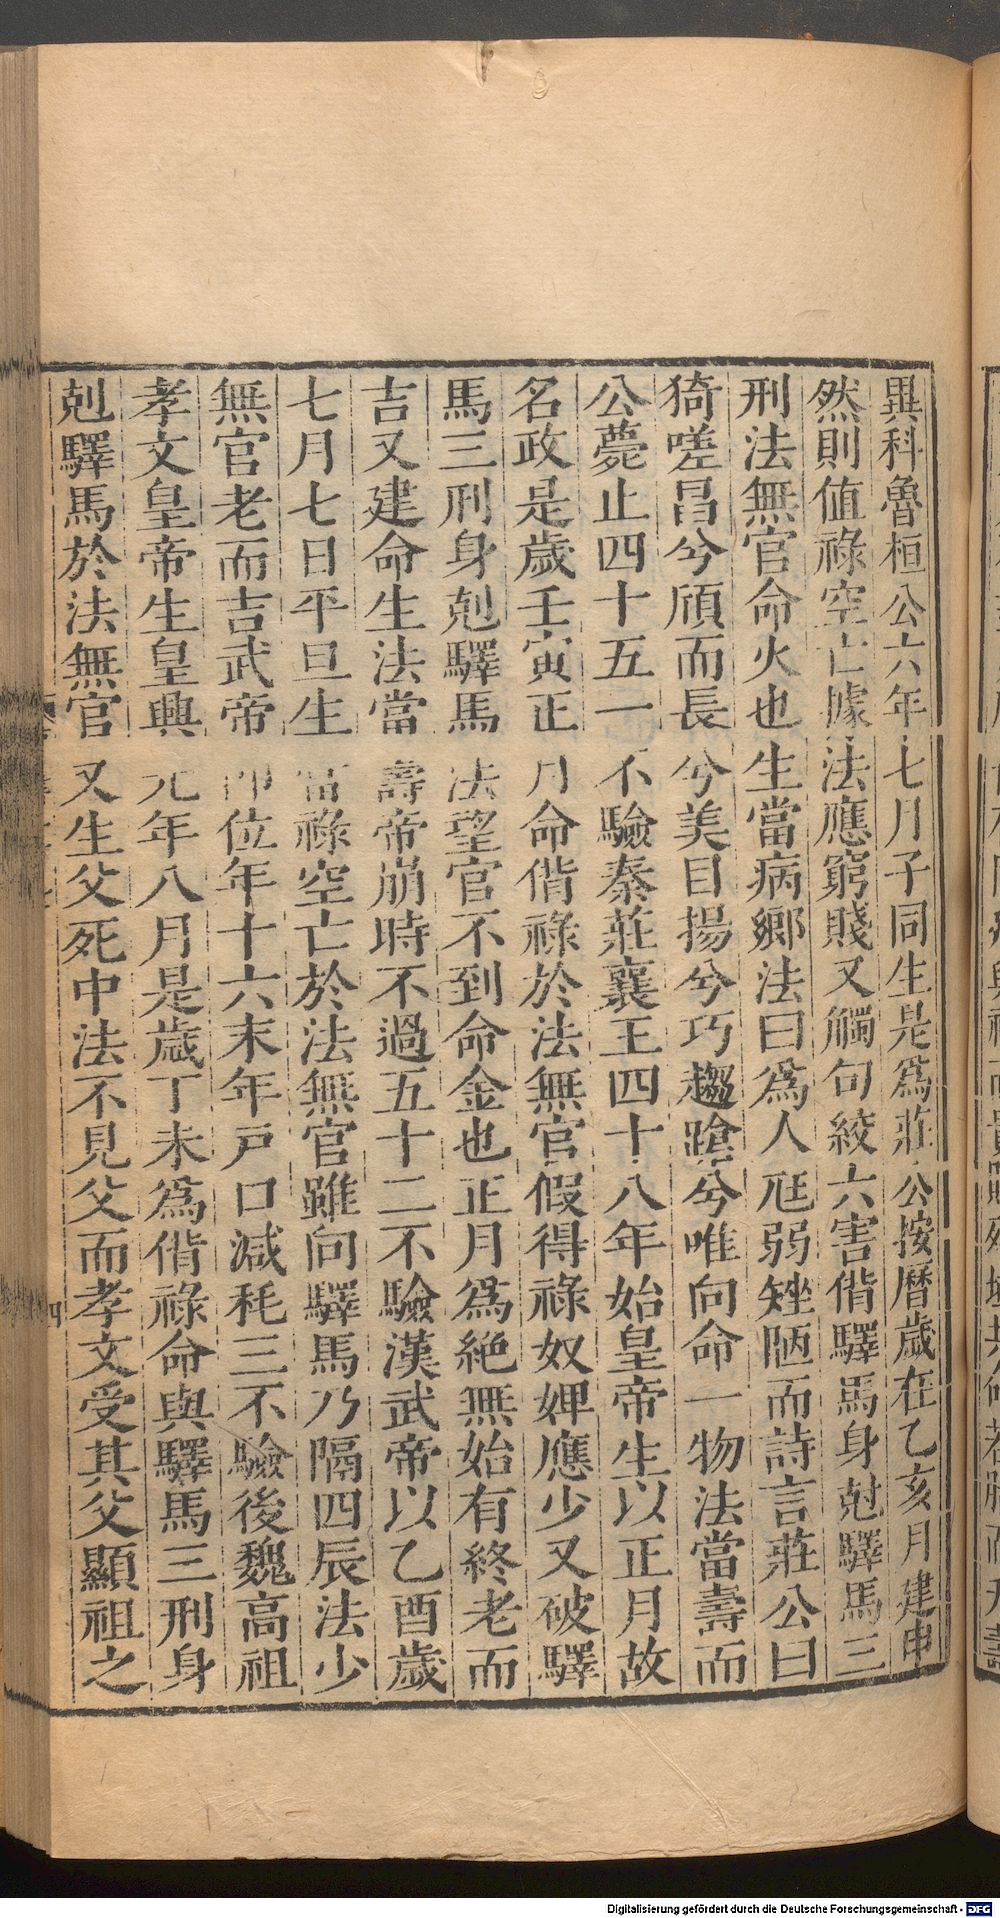 異科魯桓公六年七月子同生是爲莊公按曆歲在乙亥月建申
然則值祿空亡據法應窮賤又觸句絞六害偕驛馬身尅驛馬三
刑法無官命火也生當病鄉法曰爲人尫弱矬陋而詩言莊公曰
猗嗟昌兮頎而長兮美目揚兮巧趨蹌兮唯向命一物法當壽而
公薨止四十五一不驗秦莊襄王四十八年始皇帝生以正月故
名政是歲壬寅正月命偕祿於法無官假得祿奴婢應少又破驛
馬三刑身剋驛馬法望官不到命金也正月爲絶無始有終老而
吉又建命生法當壽帝崩時不過五十二不驗漢武帝以乙酉歲
七月七日平旦生當祿空亡於法無官雖向驛馬乃隔四辰法少
無官老而吉武帝卽位年十六末年戶口減秏三不驗後魏高祖
孝文皇帝生皇興元年八月是歲丁未爲偕祿命與驛馬三刑身
剋驛馬於法無官又生父死中法不見父而孝文受其父顯祖之
四
Digitalisierung gefördert durch die Deutsche Forschungsgemeinschaft - DFG